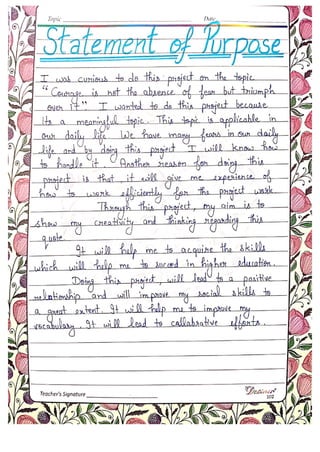 Topic Date
Statement of Purpose
I was curious to do this project on the topic
"Courage is not the absence of fear but triumph
over it" I wanted to do this project because
Its a meaningful topic. This topic is applicable in
our daily life. We have many fears in our daily
life and by doing this project I will know how
to handle it. Another reason for doing this
project is that it will give me experience of
how to work efficiently for the project work.
Through this project, my aim is to
show my creativity and thinking regarding this
quote.
It will help me to acquire the skills
which will help me to succed in higher education.
Doing this project, will lead to a positive
relationship and will improve my social skills to
a great extent. It will help me to improve my
vocabulary. It will lead to collabrative efforts.
Teacher's Signature